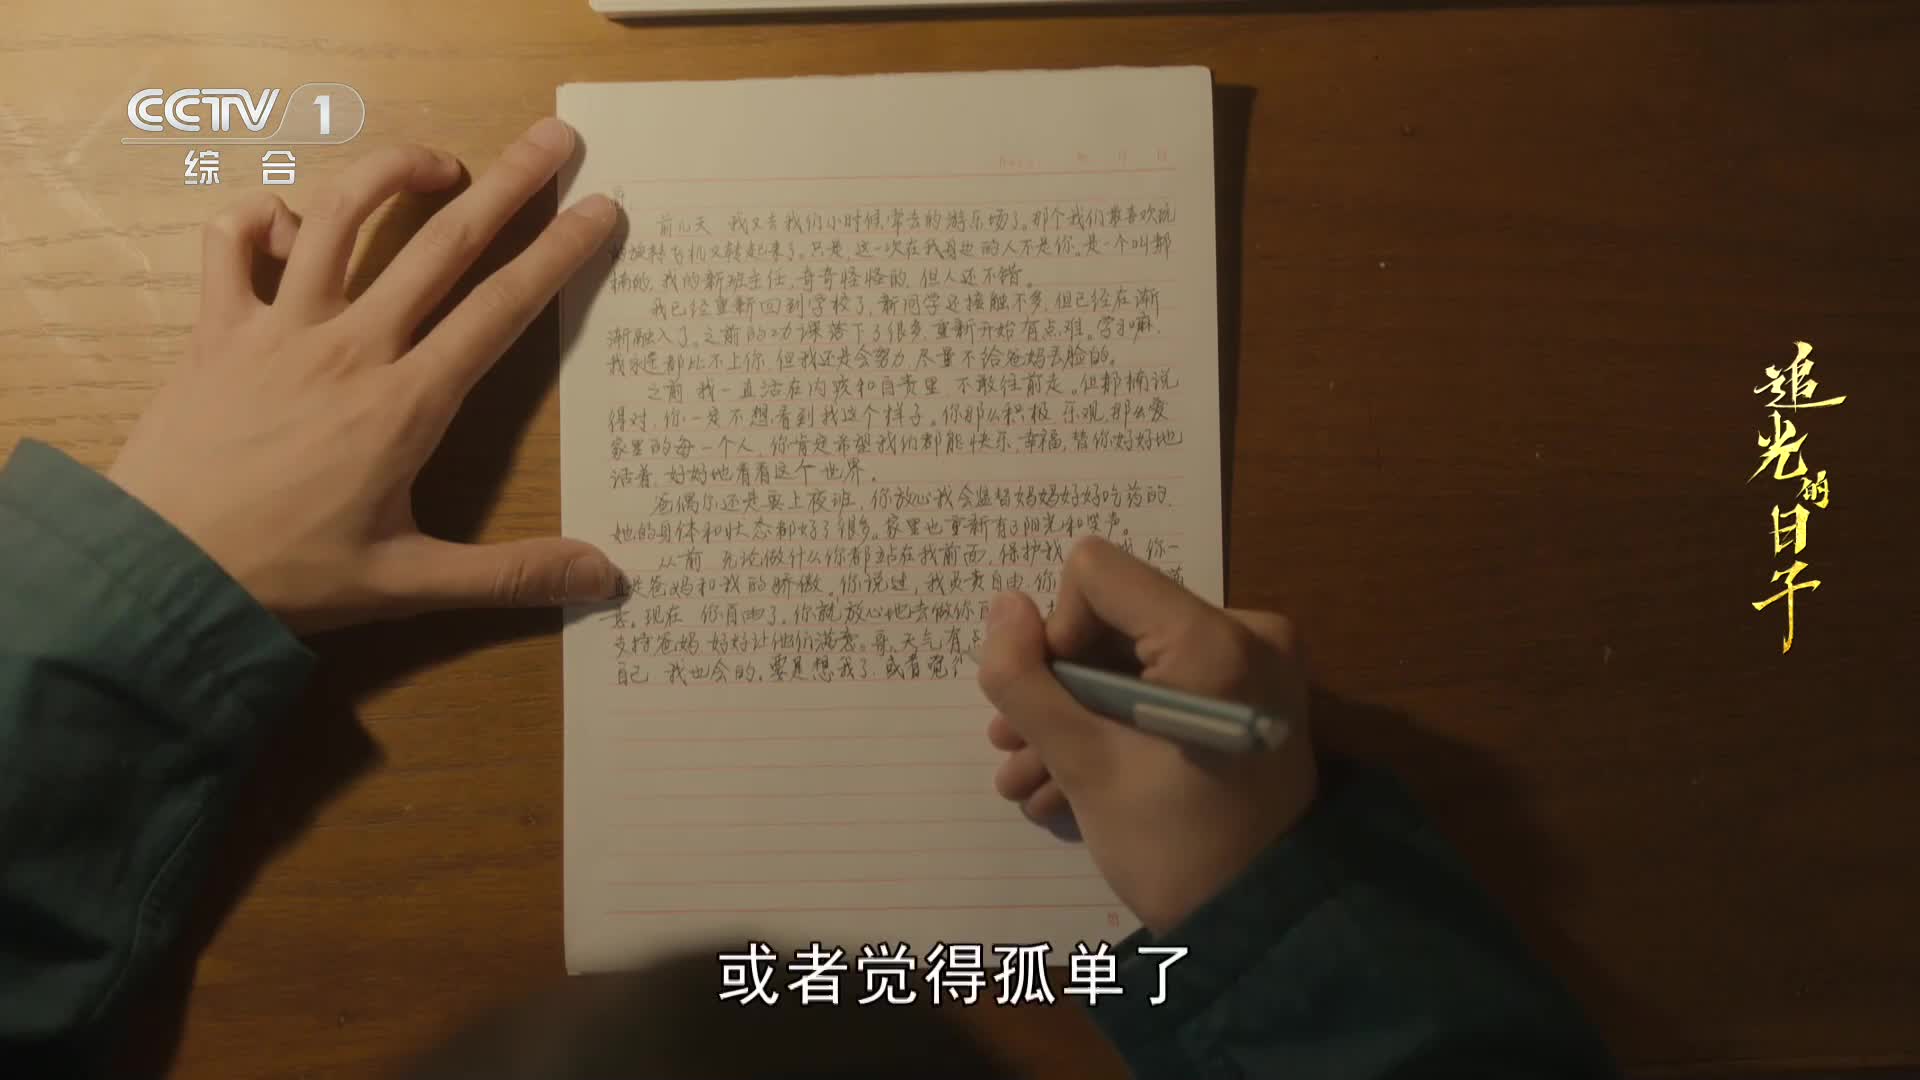 CCTV 1
综合
哥:
前几天 我又去我们小时候常去的游乐场了。那个我们最喜欢玩
的旋转飞机又转起来了。只是,这一次在我身边的人不是你。是一个叫郝
楠的,我的新班主任,奇奇怪怪的,但人还不错。
我已经重新回到学校了,新同学还接触不多,但已经在渐
渐融入了。之前的功课落下了很多,重新开始有点难。学习嘛,
我永远都比不上你,但我还是会努力,尽量不给爸妈丢脸的。
之前 我一直活在内疚和自责里,不敢往前走。但郝楠说
得对,你一定不想看到我这个样子。你那么积极,乐观,那么爱
家里的每一个人,你肯定希望我们都能快乐,幸福,替你好好地
活着,好好地看看这个世界。
爸偶尔还是要上夜班,你放心我会监督妈妈好好吃药的,
她的身体和状态都好了很多。家里也重新有了阳光和笑声。
从前 无论做什么你都站在我前面,保护我 你一
直是爸妈和我的骄傲。你说过,我负责自由,你
养。现在 你自由了。你就放心地去做你
支持爸妈,好好让他们满意。哥,天气有点
自己 我也会的。要是想我了,或者觉得
追光的日子
或者觉得孤单了